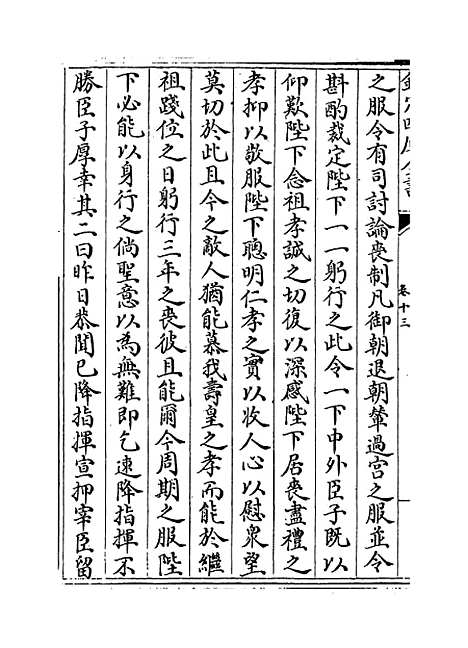 欽定四庫全書
卷十三
之服令有司討論喪制凡御朝退朝輦過宫之服並令
斟酌裁定陛下一一躬行之此令一下中外臣子既以
仰歎陛下念祖孝誠之切復以深感陛下居喪盡禮之
孝抑以敬服陛下聰明仁孝之實以收人心以慰衆望
莫切於此且今之敵人猶能慕我壽皇之孝而能於繼
祖踐位之日躬行三年之喪彼且能爾今周期之服陛
下必能以身行之倘聖意以為無難即乞速降指揮不
勝臣子厚幸其二曰昨日恭聞已降指揮宣押宰臣留